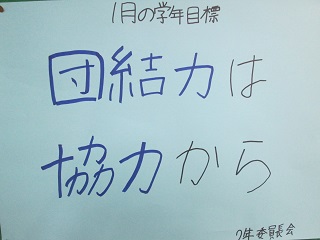 1月の学年目標
団結力は
協力から
7年委員長会